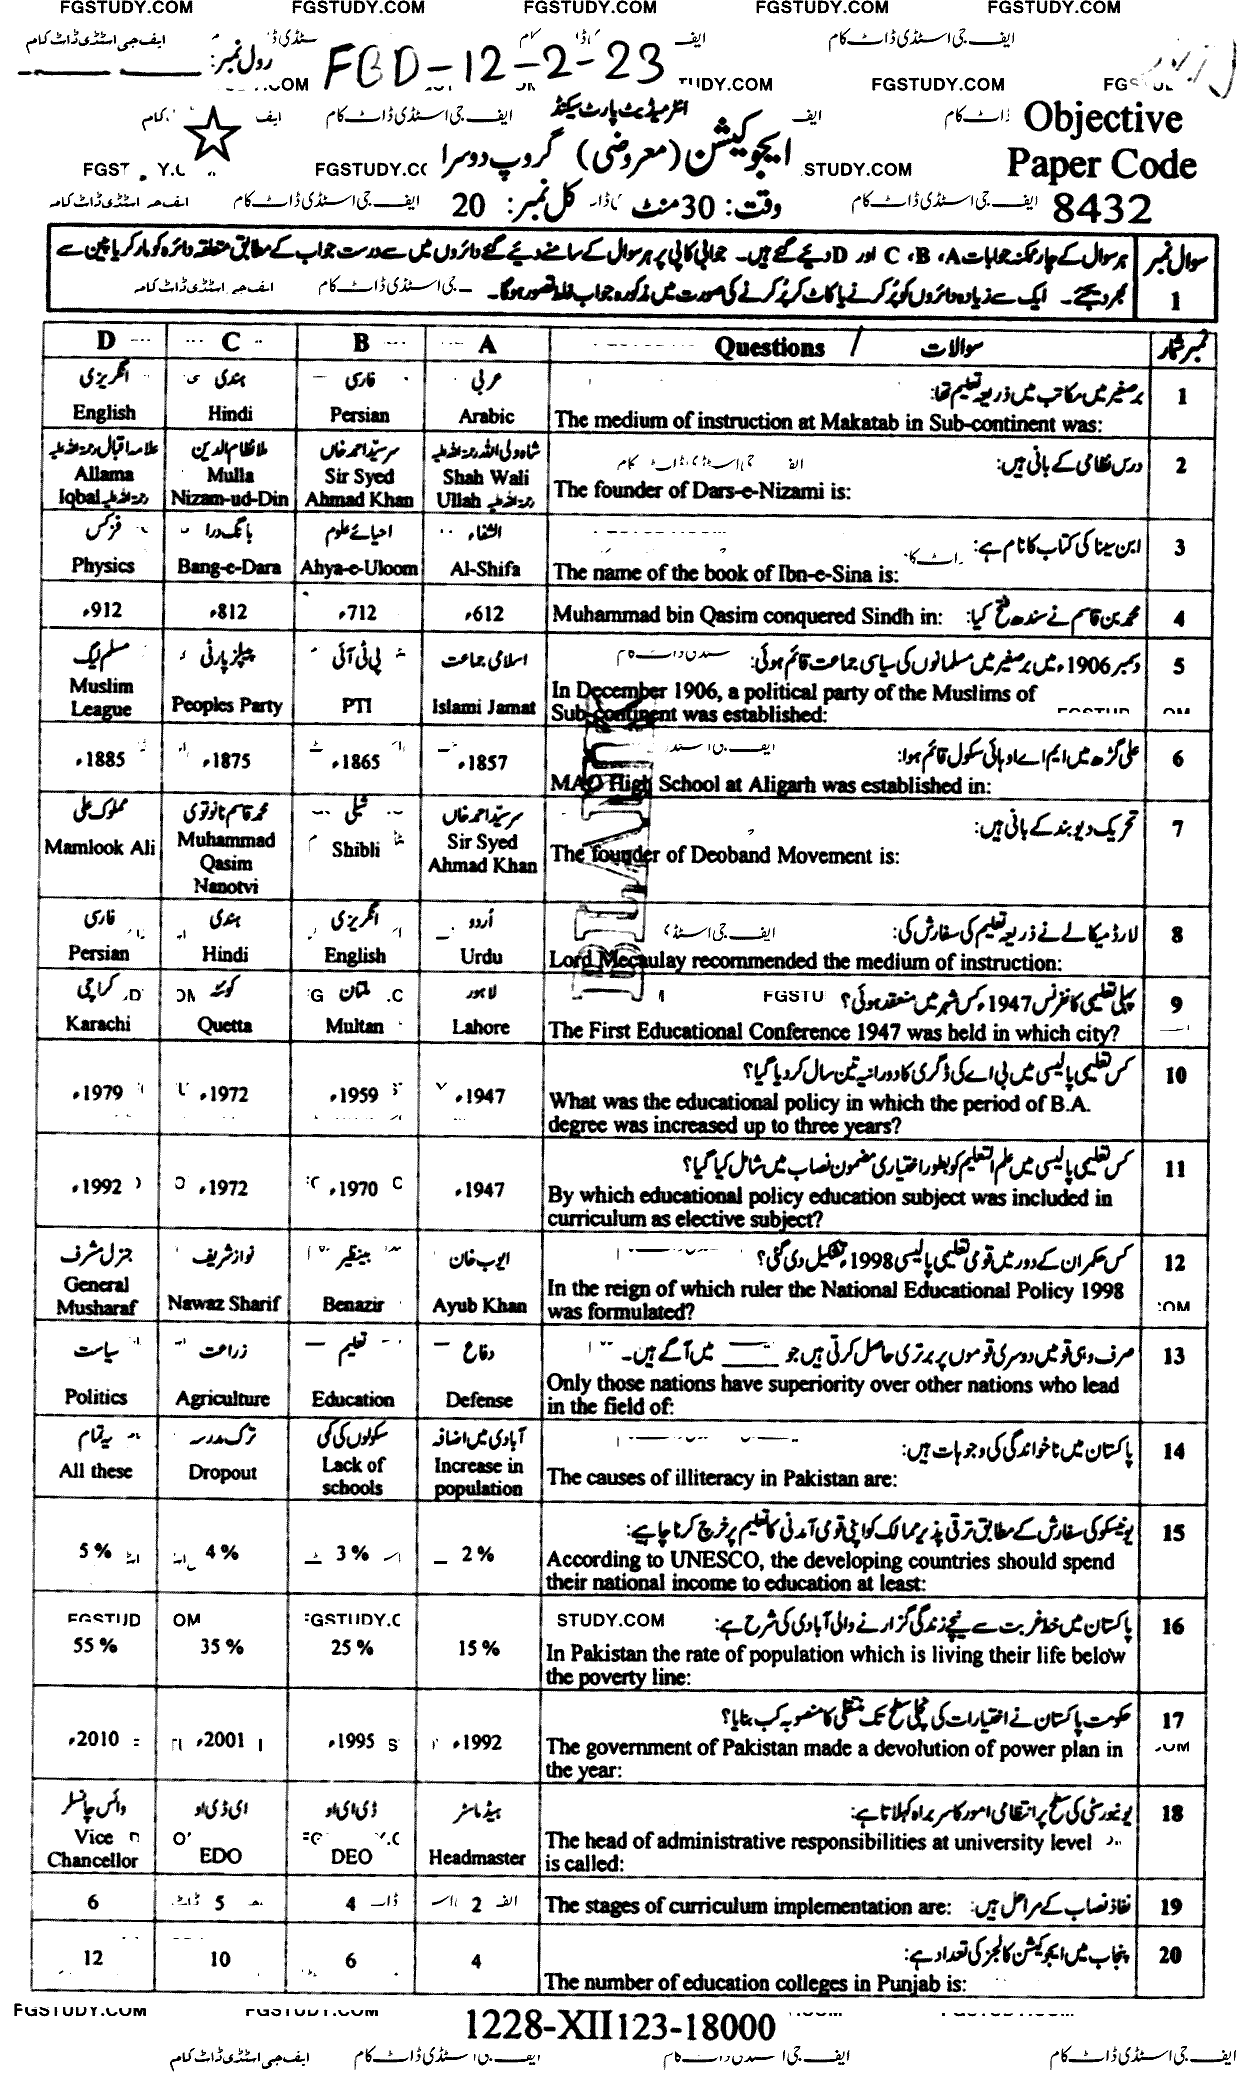 FGSTUDY.COM FGSTUDY.COM FGSTUDY.COM FGSTUDY.COM FGSTUDY.COM
ایف جی اسٹڈی ڈاٹ کام
رول نمبر:
FBD-12-2-23
FGSTUDY.COM
انٹرمیڈیٹ پارٹ سیکنڈ
Objective
Paper Code
8432
ایجوکیشن (معروضی) گروپ دوسرا
وقت: 30 منٹ کل نمبر: 20
سوال نمبر 1
ہر سوال کے چار ممکنہ جوابات A، B، C اور D دیے گئے ہیں۔ جوابی کاپی پر ہر سوال کے سامنے دیے گئے دائروں میں سے درست جواب کے مطابق متعلقہ دائرہ کو مارکر یا پین سے
بھر دیجئے۔ ایک سے زیادہ دائروں کو پُر کرنے یا کاٹ کر پُر کرنے کی صورت میں مذکورہ جواب غلط تصور ہوگا۔
نمبر شمار سوالات / Questions A B C D
1 برصغیر میں مکاتب میں ذریعہ تعلیم تھا:
The medium of instruction at Makatab in Sub-continent was:
عربی فارسی ہندی انگریزی
Arabic Persian Hindi English
2 درس نظامی کے بانی ہیں:
The founder of Dars-e-Nizami is:
شاہ ولی اللہ رحمۃ اللہ علیہ سرسیّد احمد خاں ملا نظام الدین علامہ اقبال رحمۃ اللہ علیہ
Shah Wali Ullah رحمۃ اللہ علیہ Sir Syed Ahmad Khan Mulla Nizam-ud-Din Allama Iqbal رحمۃ اللہ علیہ
3 ابن سینا کی کتاب کا نام ہے:
The name of the book of Ibn-e-Sina is:
الشفاء احیائے علوم بانگ درا فزکس
Al-Shifa Ahya-e-Uloom Bang-e-Dara Physics
4 محمد بن قاسم نے سندھ فتح کیا: Muhammad bin Qasim conquered Sindh in:
612ء 712ء 812ء 912ء
5 دسمبر 1906ء میں برصغیر میں مسلمانوں کی سیاسی جماعت قائم ہوئی:
In December 1906, a political party of the Muslims of
Sub-continent was established:
اسلامی جماعت پی ٹی آئی پیپلز پارٹی مسلم لیگ
Islami Jamat PTI Peoples Party Muslim League
6 علی گڑھ میں ایم اے او ہائی سکول قائم ہوا:
MAO High School at Aligarh was established in:
1857ء 1865ء 1875ء 1885ء
7 تحریک دیوبند کے بانی ہیں:
The founder of Deoband Movement is:
سرسیّد احمد خاں شبلی محمد قاسم نانوتوی مملوک علی
Sir Syed Ahmad Khan Shibli Muhammad Qasim Nanotvi Mamlook Ali
8 لارڈ میکالے نے ذریعہ تعلیم کی سفارش کی:
Lord Mecaulay recommended the medium of instruction:
اُردو انگریزی ہندی فارسی
Urdu English Hindi Persian
9 پہلی تعلیمی کانفرنس 1947ء کس شہر میں منعقد ہوئی؟
The First Educational Conference 1947 was held in which city?
لاہور ملتان کوئٹہ کراچی
Lahore Multan Quetta Karachi
10 کس تعلیمی پالیسی میں بی اے کی ڈگری کا دورانیہ تین سال کر دیا گیا؟
What was the educational policy in which the period of B.A.
degree was increased up to three years?
1947ء 1959ء 1972ء 1979ء
11 کس تعلیمی پالیسی میں علم التعلیم کو بطور اختیاری مضمون نصاب میں شامل کیا گیا؟
By which educational policy education subject was included in
curriculum as elective subject?
1947ء 1970ء 1972ء 1992ء
12 کس حکمران کے دور میں قومی تعلیمی پالیسی 1998ء تشکیل دی گئی؟
In the reign of which ruler the National Educational Policy 1998
was formulated?
ایوب خان بینظیر نواز شریف جنرل مشرف
Ayub Khan Benazir Nawaz Sharif General Musharaf
13 صرف وہی قومیں دوسری قوموں پر برتری حاصل کرتی ہیں جو ____ میں آگے ہیں۔
Only those nations have superiority over other nations who lead
in the field of:
دفاع تعلیم زراعت سیاست
Defense Education Agriculture Politics
14 پاکستان میں ناخواندگی کی وجوہات ہیں:
The causes of illiteracy in Pakistan are:
آبادی میں اضافہ سکولوں کی کمی ترک مدرسہ یہ تمام
Increase in population Lack of schools Dropout All these
15 یونیسکو کی سفارش کے مطابق ترقی پذیر ممالک کو اپنی قومی آمدنی کا تعلیم پر خرچ کرنا چاہیے:
According to UNESCO, the developing countries should spend
their national income to education at least:
2% 3% 4% 5%
16 پاکستان میں خط غربت سے نیچے زندگی گزارنے والی آبادی کی شرح ہے:
In Pakistan the rate of population which is living their life below
the poverty line:
15% 25% 35% 55%
17 حکومت پاکستان نے اختیارات کی نچلی سطح تک منتقلی کا منصوبہ کب بنایا؟
The government of Pakistan made a devolution of power plan in
the year:
1992ء 1995ء 2001ء 2010ء
18 یونیورسٹی کی سطح پر انتظامی امور کا سربراہ کہلاتا ہے:
The head of administrative responsibilities at university level
is called:
ہیڈماسٹر ڈی ای او ای ڈی او وائس چانسلر
Headmaster DEO EDO Vice Chancellor
19 نفاذ نصاب کے مراحل ہیں: The stages of curriculum implementation are:
2 4 5 6
20 پنجاب میں ایجوکیشن کالجز کی تعداد ہے:
The number of education colleges in Punjab is:
4 6 10 12
FGSTUDY.COM
1228-XII123-18000
ایف جی اسٹڈی ڈاٹ کام